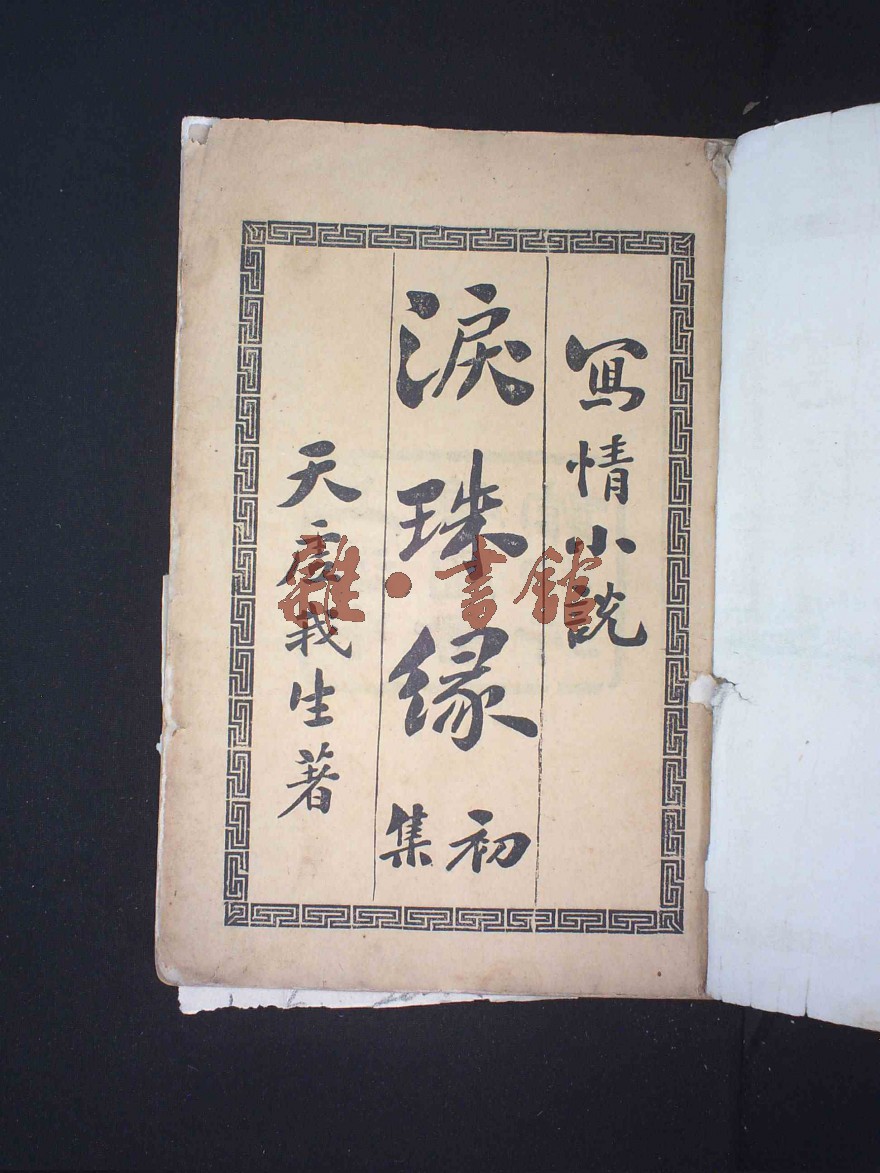 寫情小說
淚珠緣
初集
天虛我生著
雜·書館